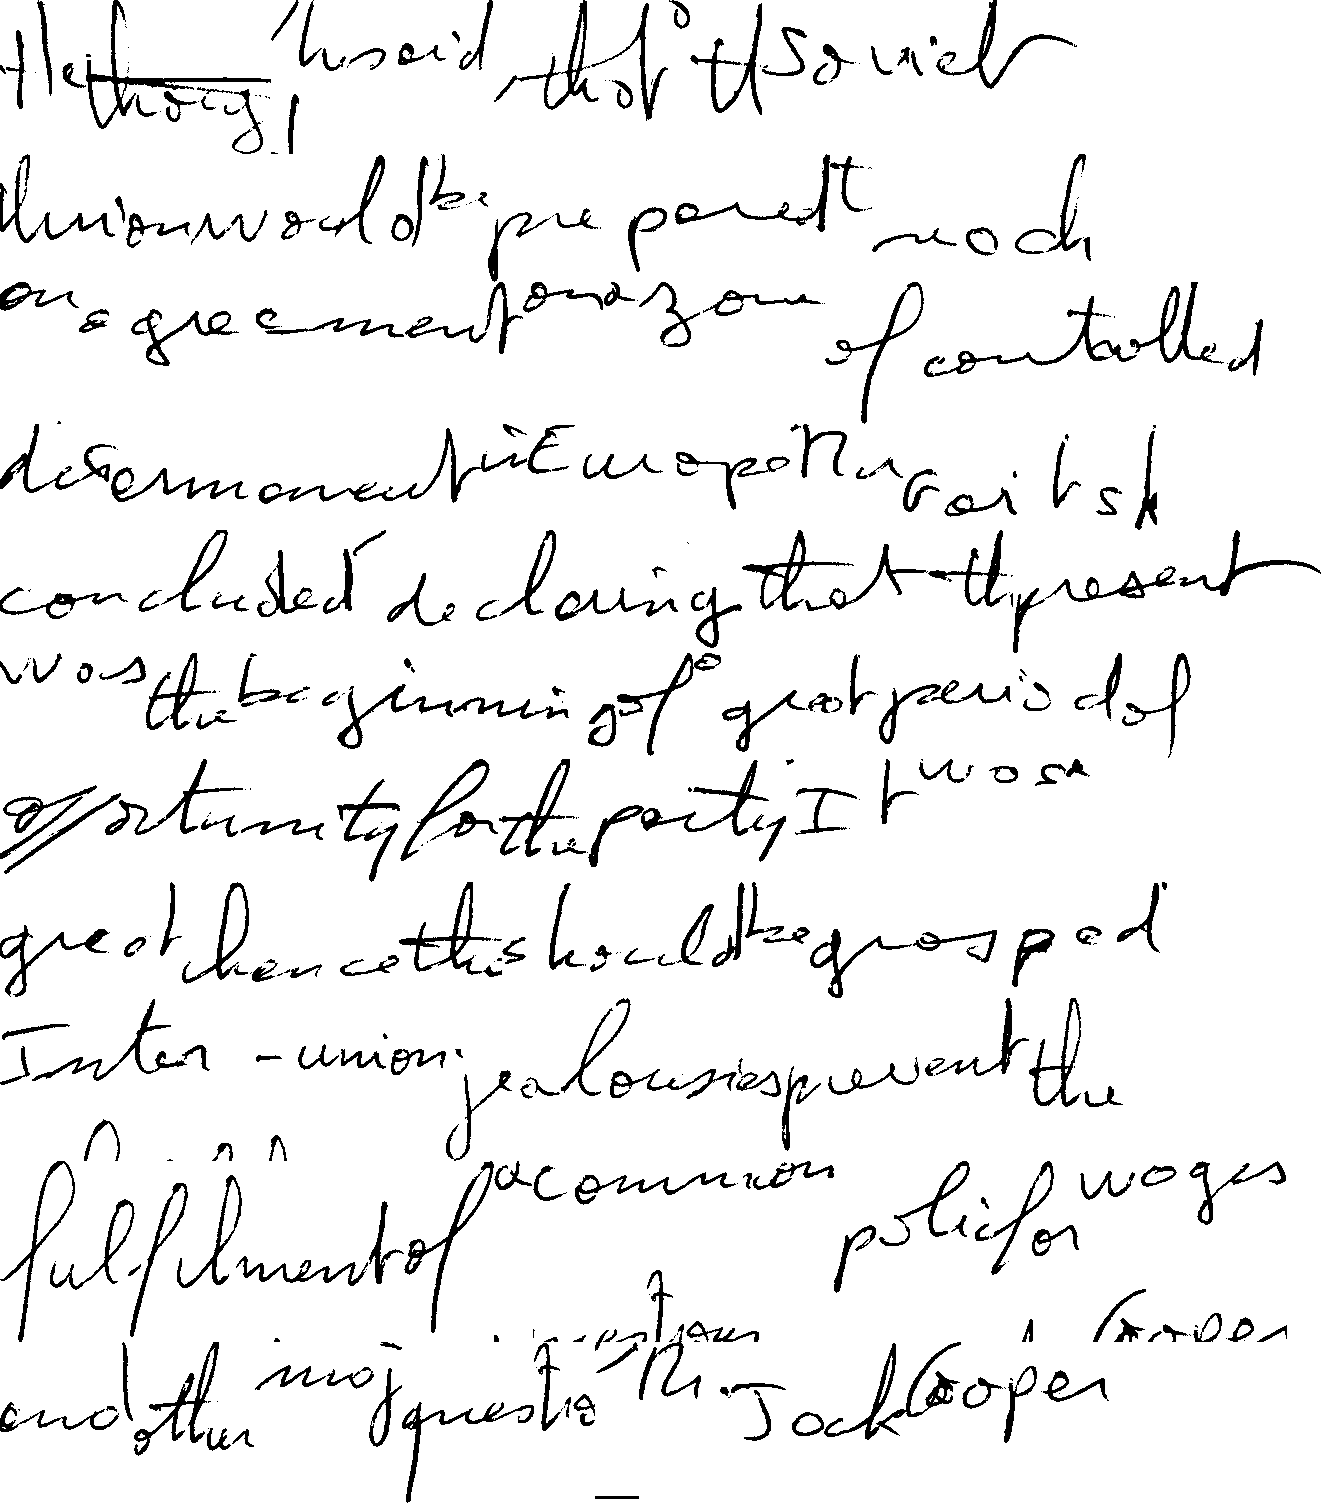 He he said that th Soviet
Union would be prepared t
on agreement on a zone of controlled
disarmament in Europe Mr Gaitsk
concluded declaring that th present
was the beginning of a great period of
opportunity for the party It was a
great chance this should be grasped
Inter-union jealousies prevent the
fulfilment of a common polici for wages
and other maj questio Mr. Jack Cooper